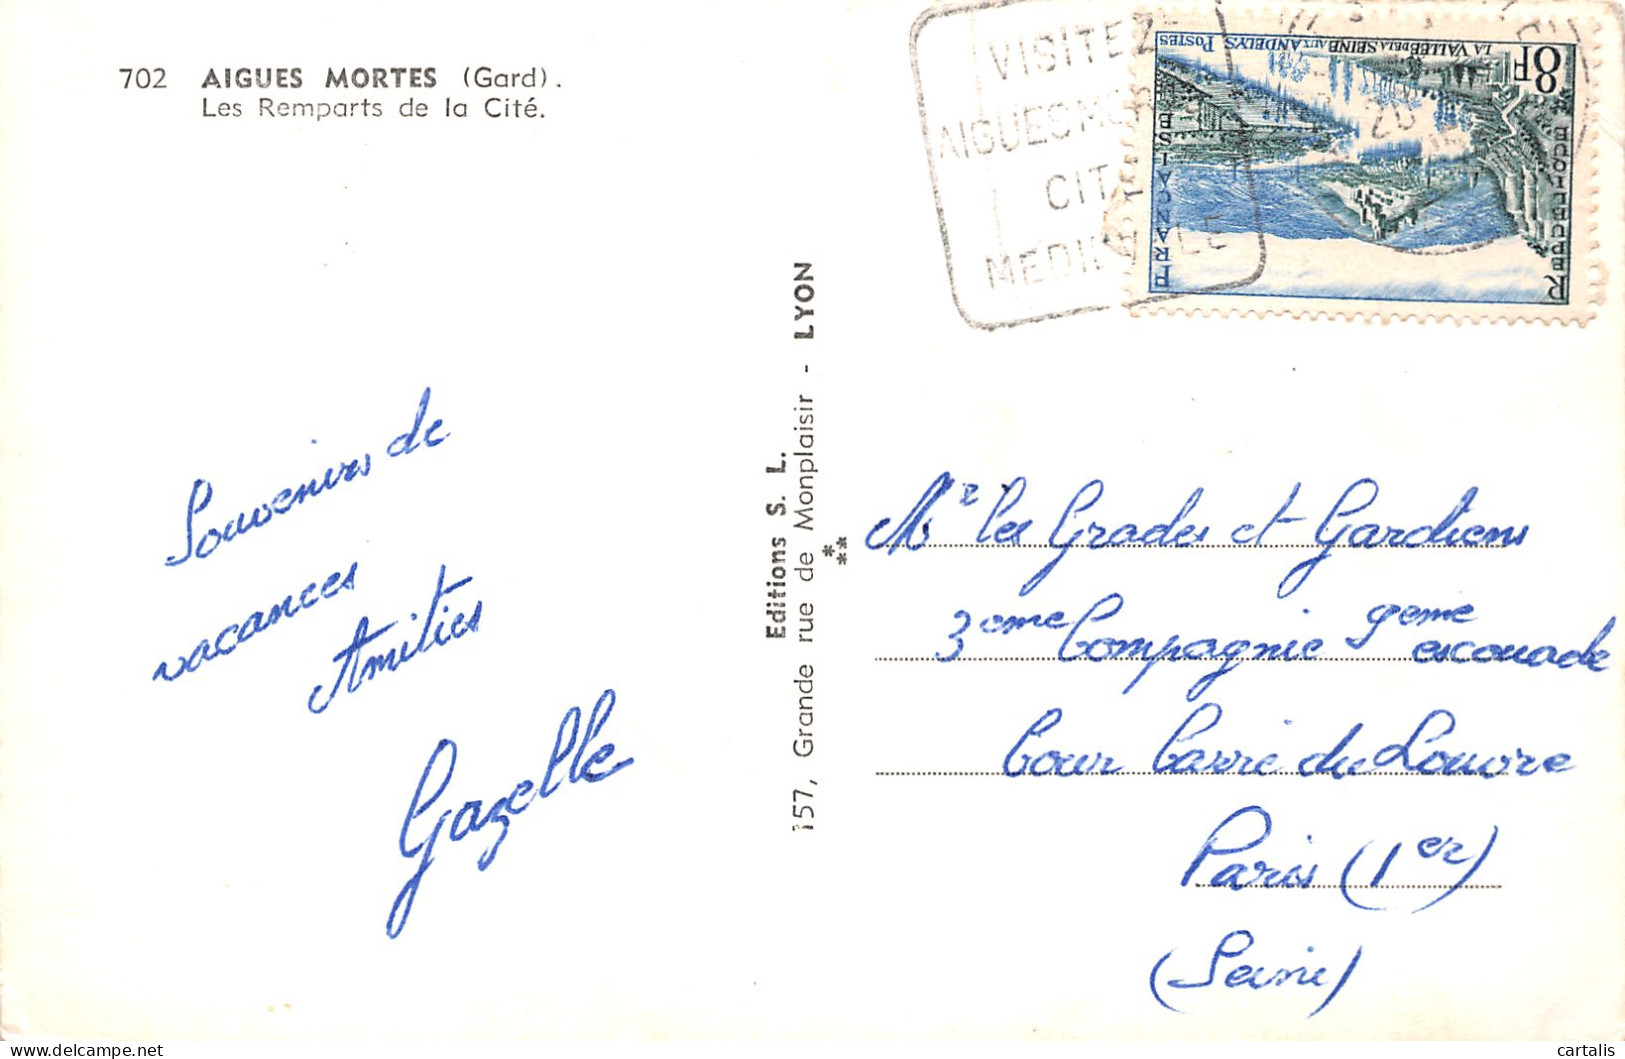 702 AIGUES MORTES (Gard).
Les Remparts de la Cité.
Souvenirs de
vacances
Amitiés
Gazelle
Editions S. L.
157, Grande rue de Monplaisir - LYON
VISITEZ
AIGUES MOR
CIT
MEDIEVALE
8F
LA VALLEE DE LA SEINE AUX ANDELYS POSTES
REPUBLIQUE
FRANÇAISE
Mr les Grades et Gardiens
3eme Compagnie 9eme escouade
Cour Carré du Louvre
Paris (1er)
(Seine)
cartalis